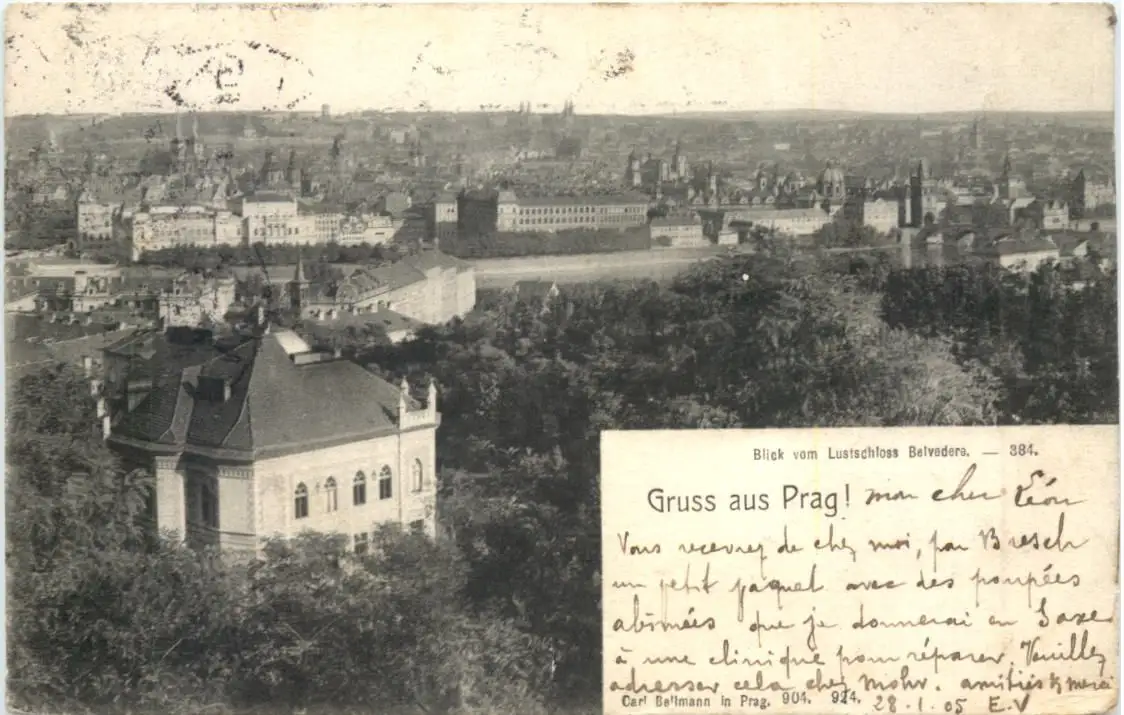 Blick vom Lustschloss Belvedere. — 384.
Gruss aus Prag! mon cher Léon
Vous recevrez de chez moi, par Bresch
un petit paquet avec des poupées
abîmées que je donnerai en Saxe
à une clinique pour réparer. Veuillez
adresser cela chez Mohr. amitiés & merci
Carl Bellmann in Prag. 904. 924. 28.1.05 E.V